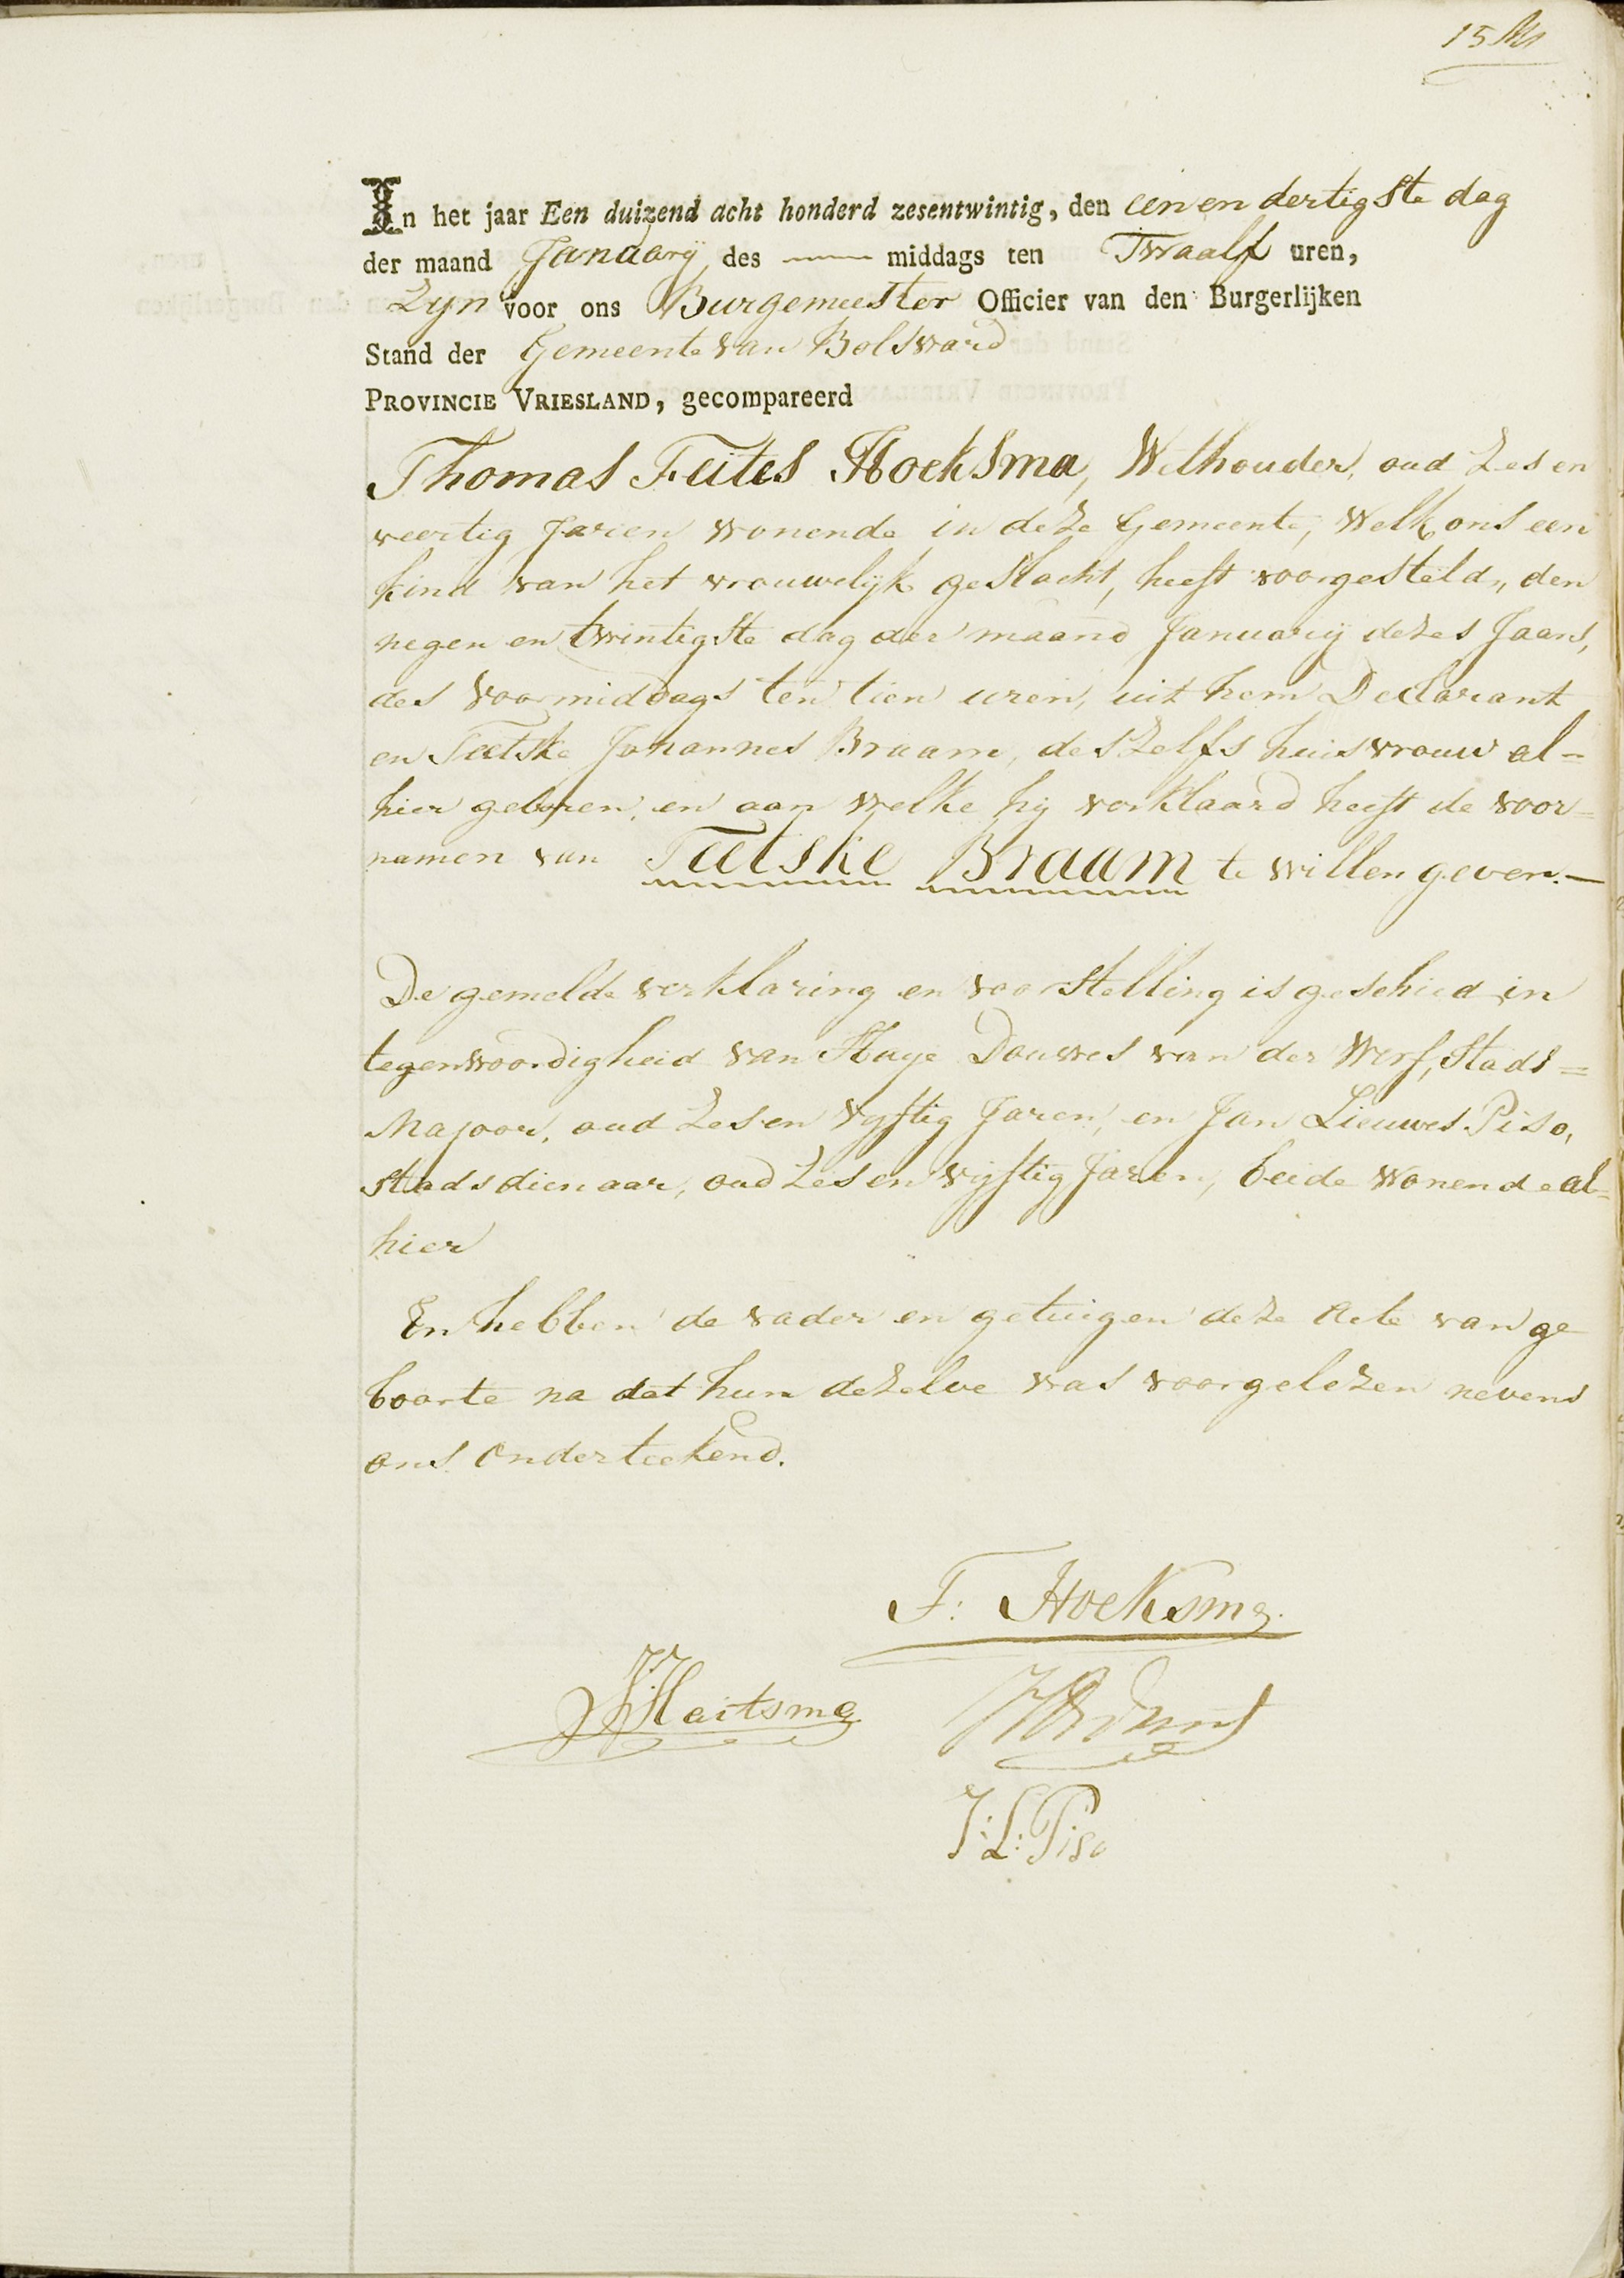 15
In het jaar Een duizend acht honderd zesentwintig, den eenen dertigste dag
der maand Januarij des —— middags ten Twaalf uren,
Zyn voor ons Burgemeester Officier van den Burgerlijken
Stand der Gemeente van Bolsward
PROVINCIE VRIESLAND, gecompareerd
Thomas Feites Hoeksma, Wethouder, oud Zes en
veertig Jaren wonende in deze Gemeente, Welk ons een
kind van het vrouwelijk geslacht, heeft voorgesteld, den
negen en twintigste dag der maand Januarij dezes Jaars,
des Voormiddags ten tien uren, uit hem Declarant
en Tietske Johannes Braam, deszelfs huisvrouw al=
hier geboren, en aan welke hij verklaard heeft de voor=
namen van Tietske Braam te willen geven.—
De gemelde verklaring en voorstelling is geschied in
tegenwoordigheid van Haye Douwes van der Werf, Stads=
Majoor, oud Zes en Vyftig Jaren, en Jan Lieuwes Piso,
Stadsdienaar, oud Zes en vijftig Jaren, beide Wonende al=
hier
En hebben de vader en getuigen deze Acte van ge
boorte na dat hun dezelve was voorgelezen nevens
ons Onderteekend.
T: Hoeksma.
Haitsma
J:L:Piso